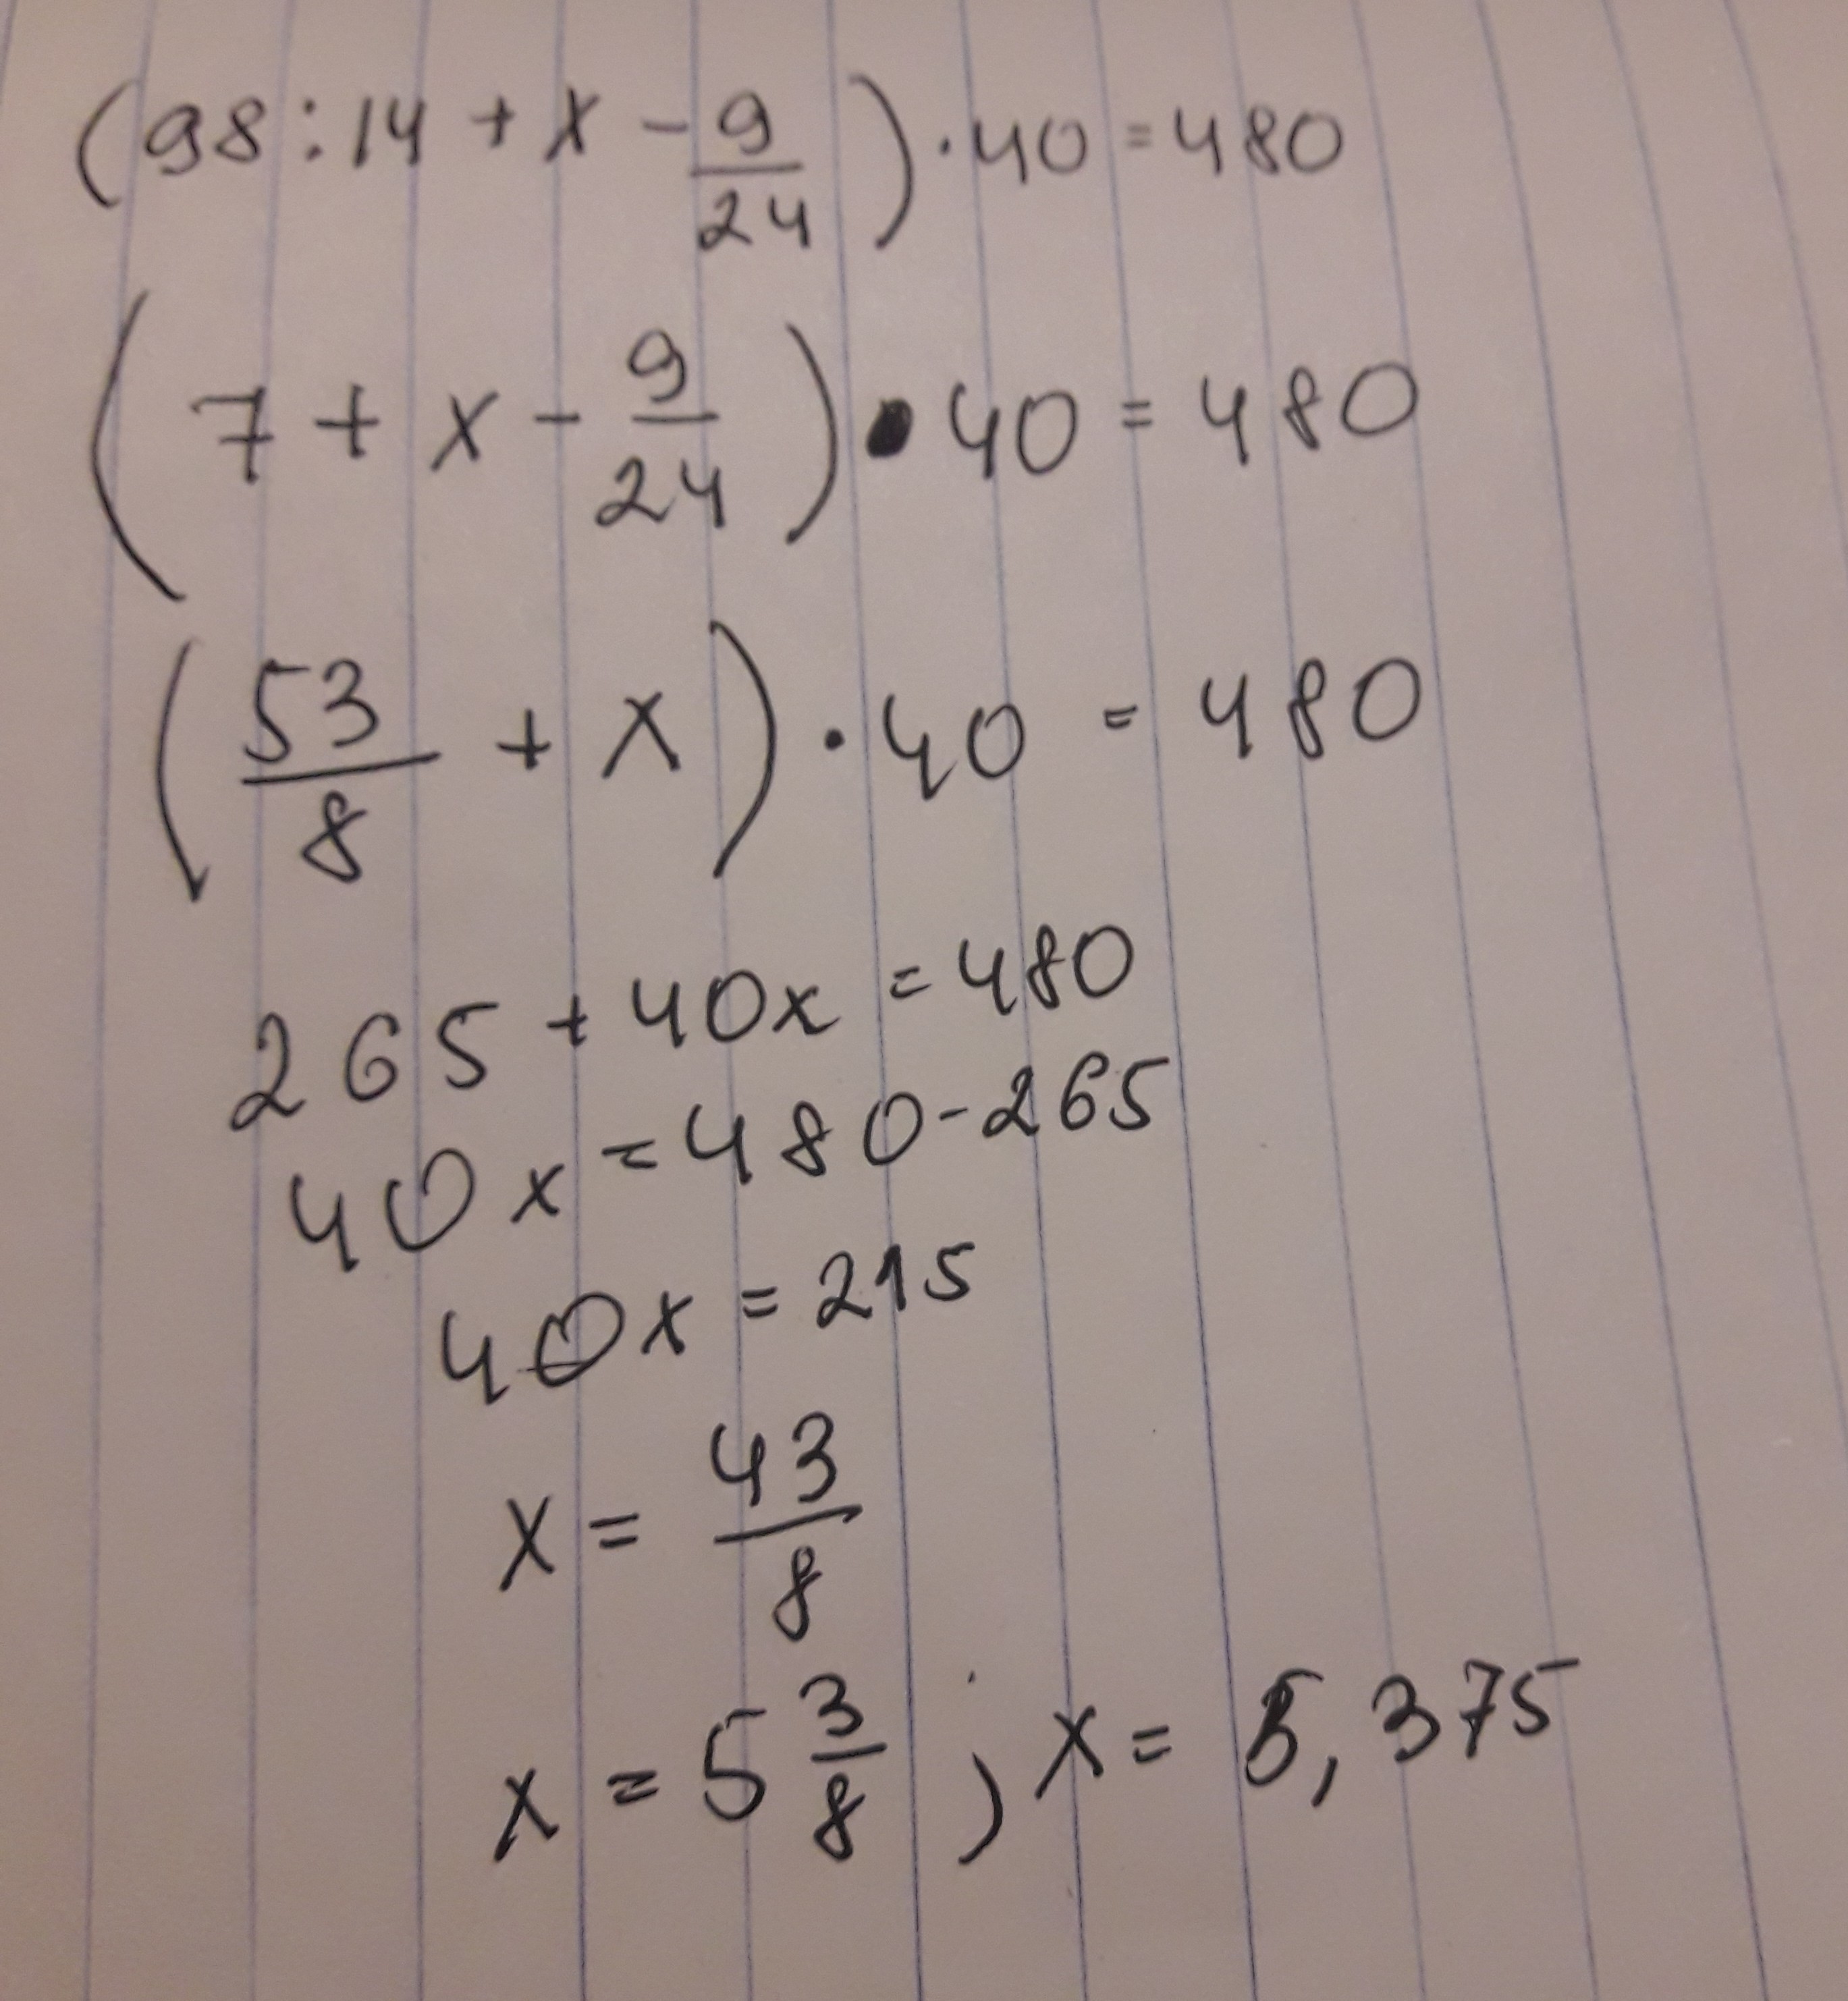 (98:14 + x - 9/24) · 40 = 480
(7 + x - 9/24) · 40 = 480
(53/8 + x) · 40 = 480
265 + 40x = 480
40x = 480 - 265
40x = 215
x = 43/8
x = 5 3/8 ; x = 5,375